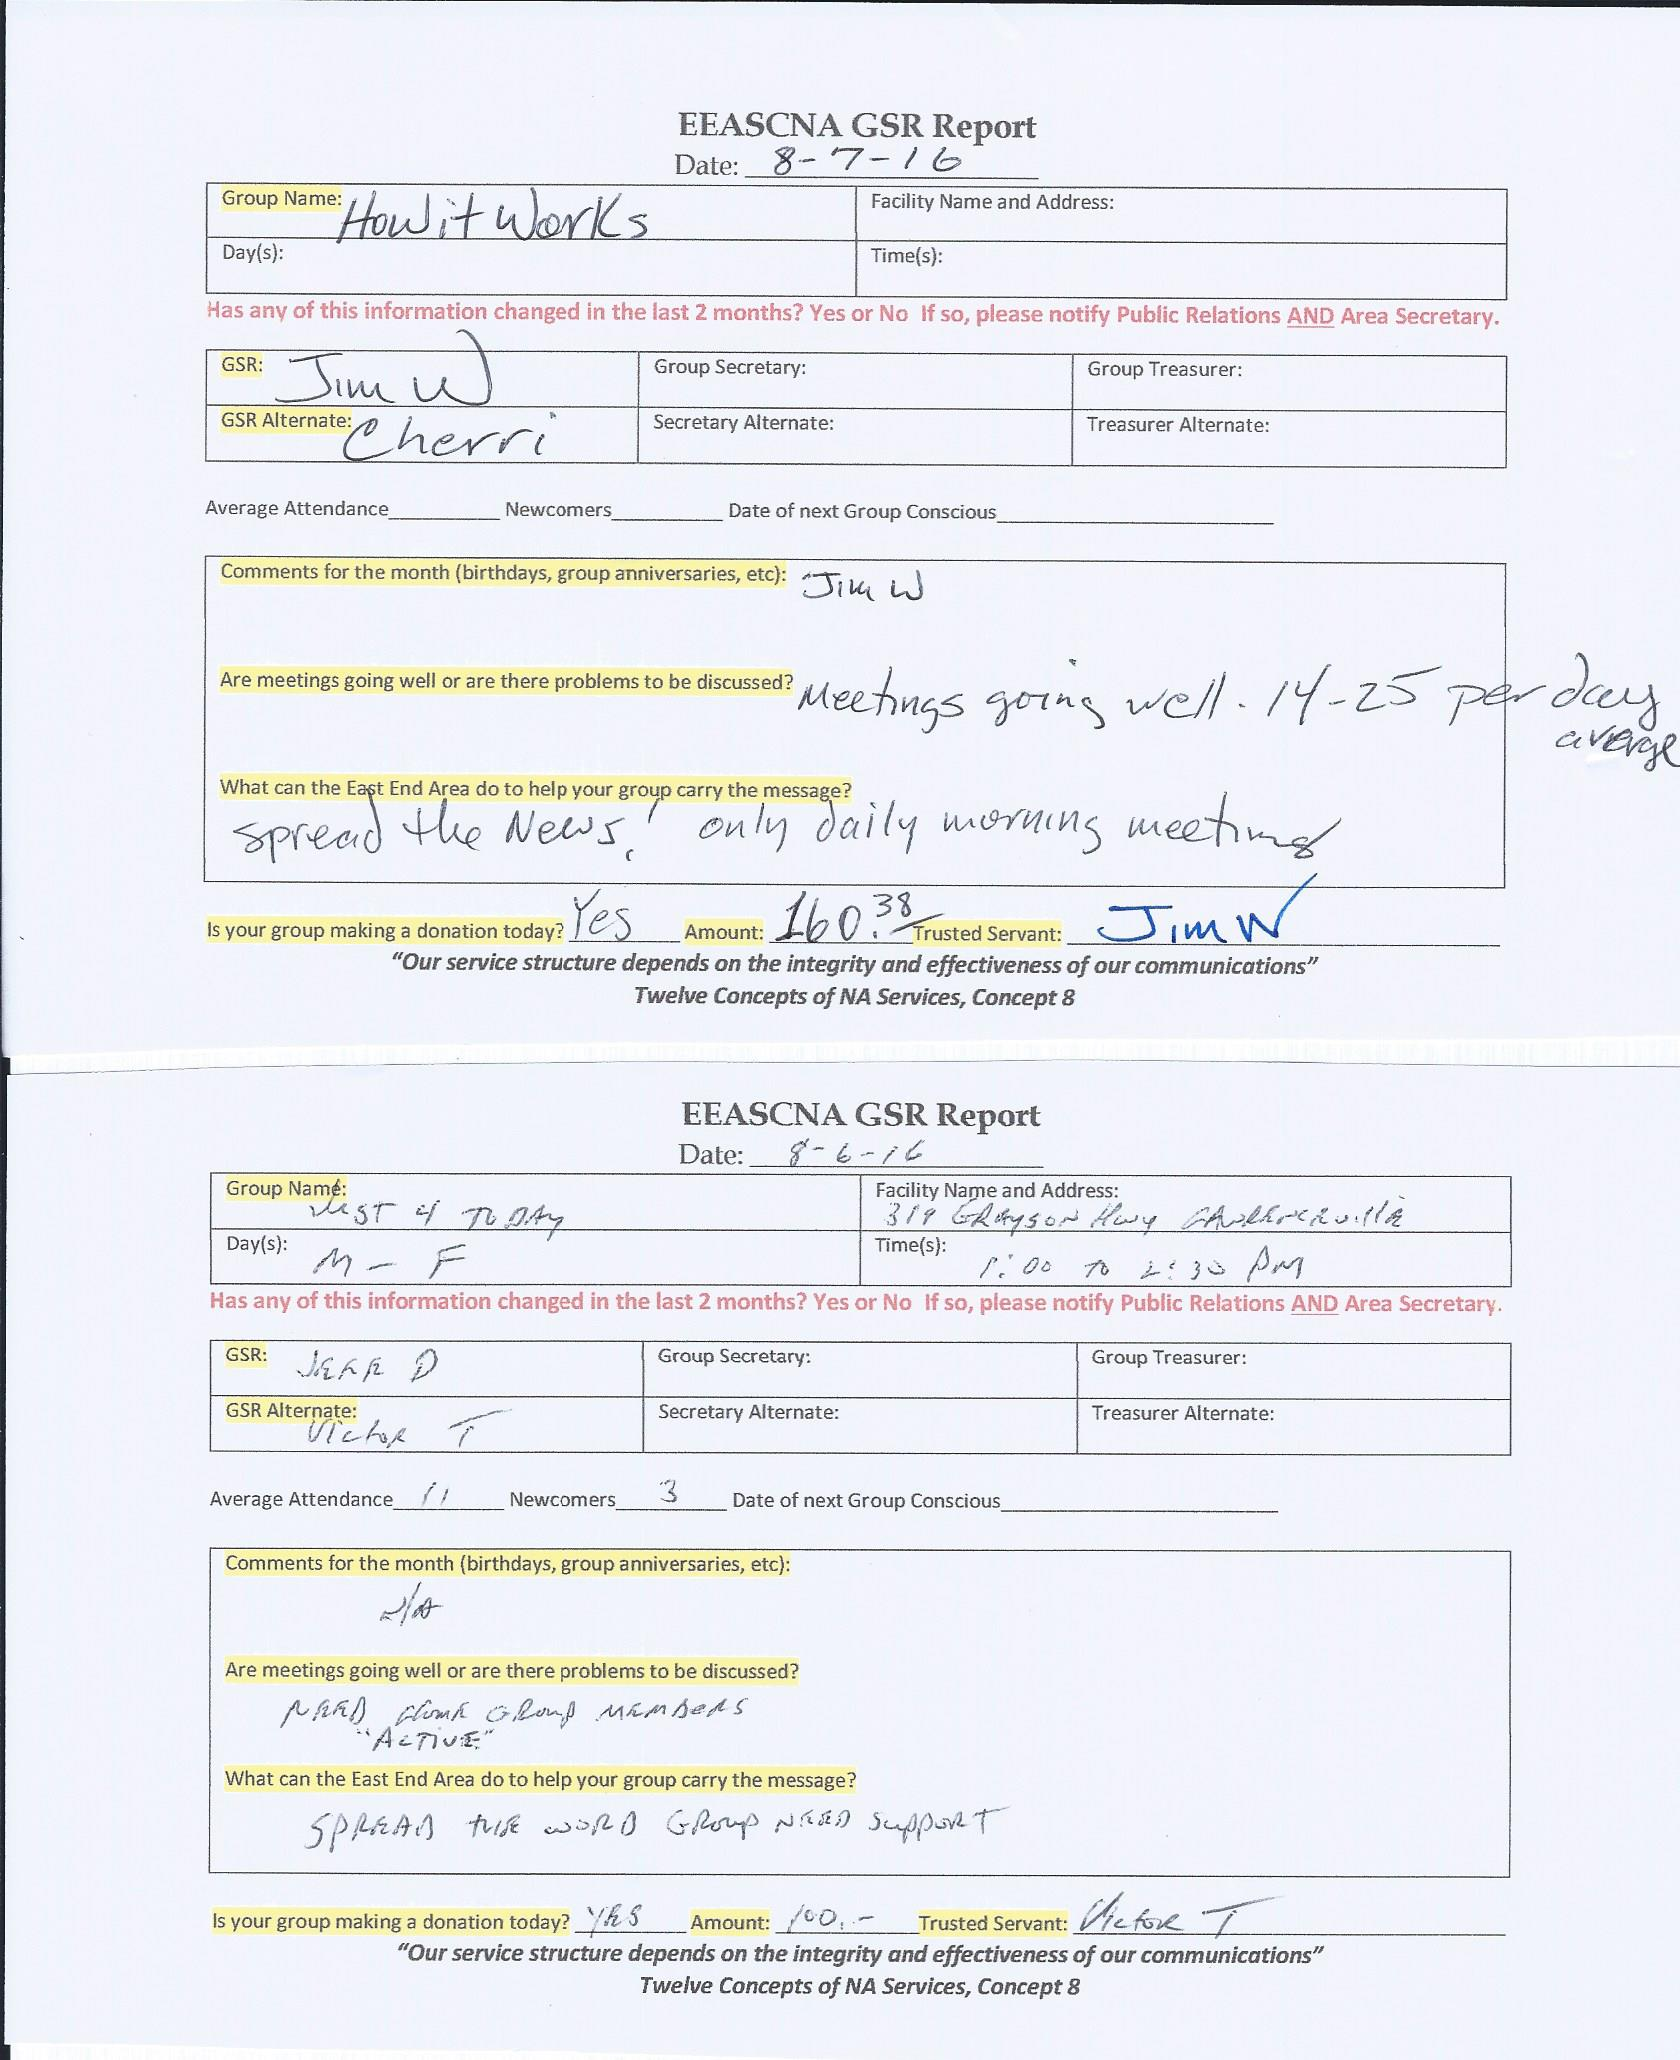 EEASCNA GSR Report
Date: 8-7-16
Group Name: How it Works
Facility Name and Address:
Day(s):
Time(s):
Has any of this information changed in the last 2 months? Yes or No If so, please notify Public Relations AND Area Secretary.
GSR: Jim W
Group Secretary:
Group Treasurer:
GSR Alternate: Cherri
Secretary Alternate:
Treasurer Alternate:
Average Attendance Newcomers Date of next Group Conscious
Comments for the month (birthdays, group anniversaries, etc): Jim W
Are meetings going well or are there problems to be discussed? Meetings going well. 14-25 per day
average
What can the East End Area do to help your group carry the message?
spread the News! only daily morning meeting
Is your group making a donation today? Yes Amount: 160.38 Trusted Servant: Jim W
"Our service structure depends on the integrity and effectiveness of our communications"
Twelve Concepts of NA Services, Concept 8
EEASCNA GSR Report
Date: 8-6-16
Group Name:
Just 4 TODAY
Facility Name and Address:
319 GRAYSON Hwy LAWRENCEVIlle
Day(s): M - F
Time(s):
1:00 TO 2:30 PM
Has any of this information changed in the last 2 months? Yes or No If so, please notify Public Relations AND Area Secretary.
GSR: JEFF D
Group Secretary:
Group Treasurer:
GSR Alternate:
Victor T
Secretary Alternate:
Treasurer Alternate:
Average Attendance 11 Newcomers 3 Date of next Group Conscious
Comments for the month (birthdays, group anniversaries, etc):
N/A
Are meetings going well or are there problems to be discussed?
NEED HOME GROUP MEMBERS
"ACTIVE"
What can the East End Area do to help your group carry the message?
SPREAD THE WORD GROUP NEED SUPPORT
Is your group making a donation today? YES Amount: 100.- Trusted Servant: Victor T
"Our service structure depends on the integrity and effectiveness of our communications"
Twelve Concepts of NA Services, Concept 8